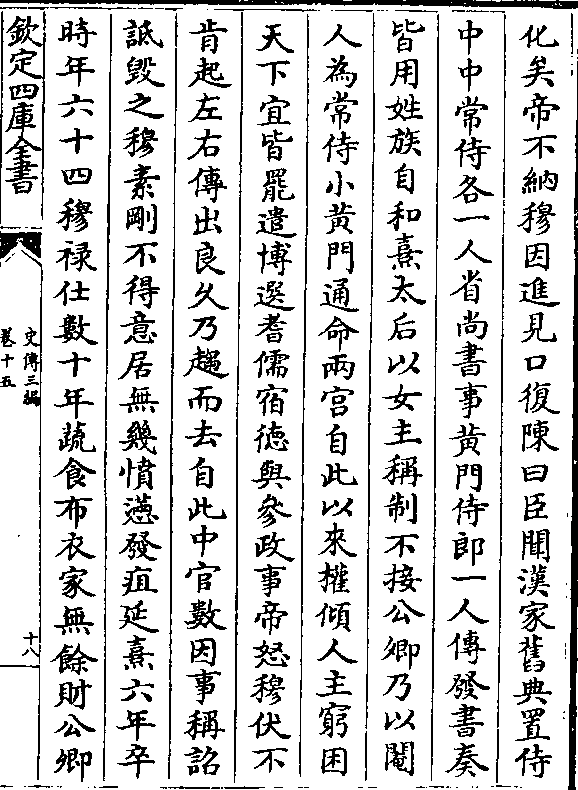 化矣帝不納穆因進見口復陳曰臣聞漢家舊典置侍
中中常侍各一人省尚書事黄門侍郎一人傳發書奏
皆用姓族自和熹太后以女主稱制不接公卿乃以閹
人為常侍小黄門通命兩宫自此以來權傾人主窮困
天下宜皆罷遣博選耆儒宿德與參政事帝怒穆伏不
肯起左右傳出良乆乃趨而去自此中官數因事稱詔
詆毁之穆素剛不得意居無幾憤懣發疽延熹六年卒
時年六十四穆禄仕數十年蔬食布衣家無餘財公卿
欽定四庫全書
史傳三編
卷十五
十八